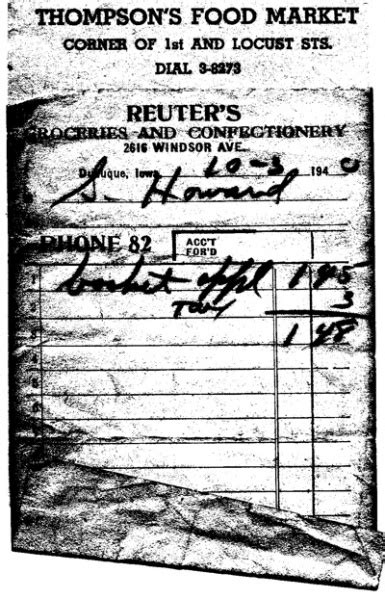 THOMPSON'S FOOD MARKET
CORNER OF 1st AND LOCUST STS.
DIAL 3-8273
REUTER'S
GROCERIES AND CONFECTIONERY
2616 WINDSOR AVE.
Dubuque, Iowa, 10-3 1940
S. Howard
PHONE 82 ACC'T FOR'D
basket appl 1 45
Tax 3
1 48